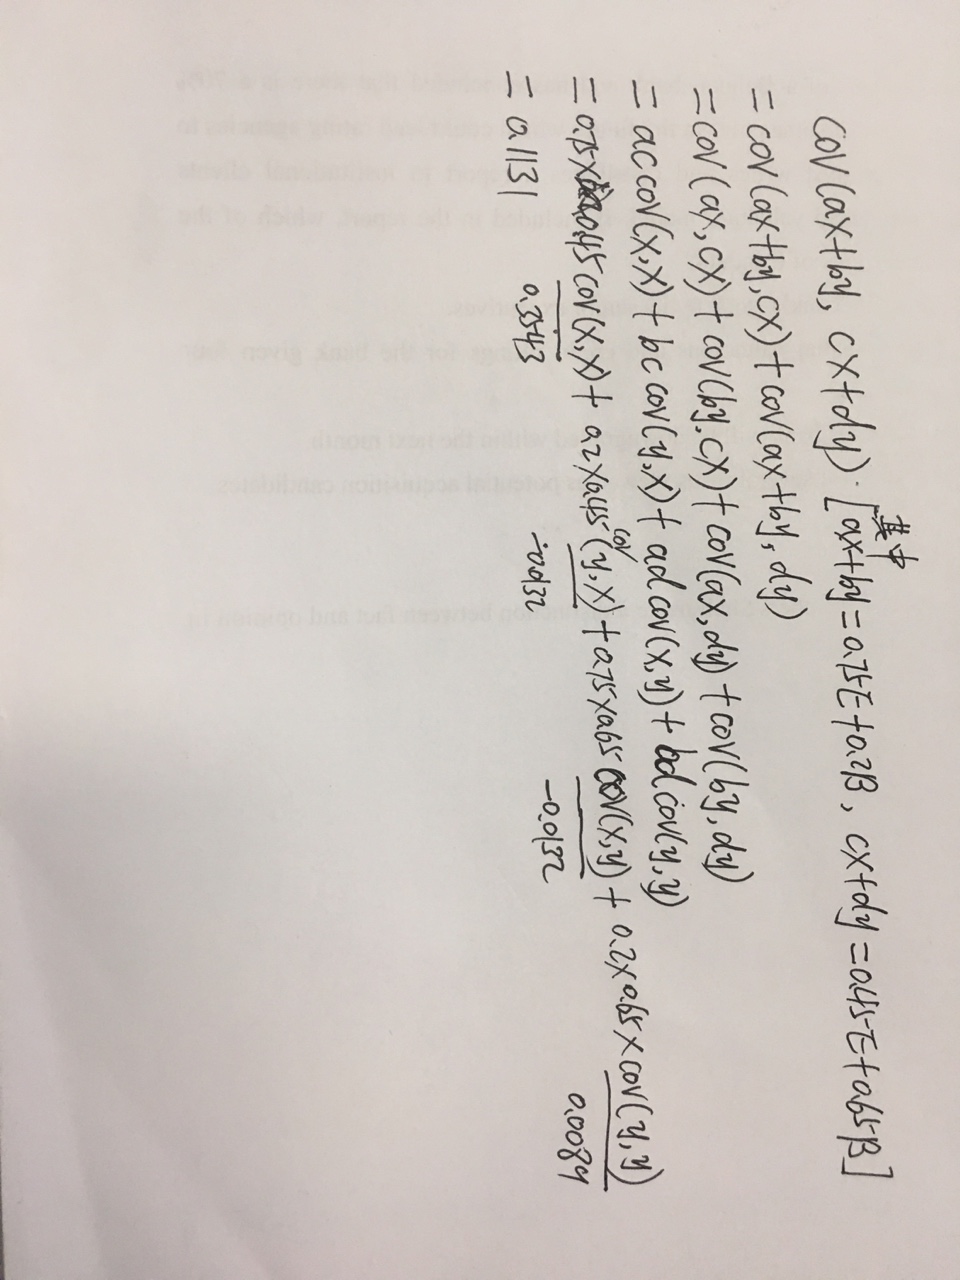 cov(ax+by, cx+dy) [其中 ax+by=0.75E+0.2B, cx+dy=0.45E+0.65B]
= cov(ax+by, cx)+cov(ax+by, dy)
= cov(ax, cx)+cov(by, cx)+cov(ax, dy)+cov(by, dy)
= ac cov(x,x)+bc cov(y,x)+ad cov(x,y)+bd cov(y,y)
= 0.75×0.45 cov(x,x)+0.2×0.45 cov(y,x)+0.75×0.65 cov(x,y)+0.2×0.65×cov(y,y)
0.3543 -0.0132 -0.0132 0.0084
= 0.1131